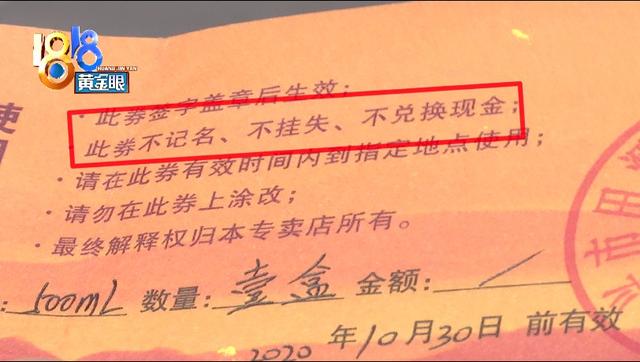 1818
HUANG JIN YAN
黄金眼
使
用
·此券签字盖章后生效；
·此券不记名、不挂失、不兑换现金；
·请在此券有效时间内到指定地点使用；
·请勿在此券上涂改；
·最终解释权归本专卖店所有。
：500mL 数量：壹盒 金额：/
2020 年10月30日 前有效